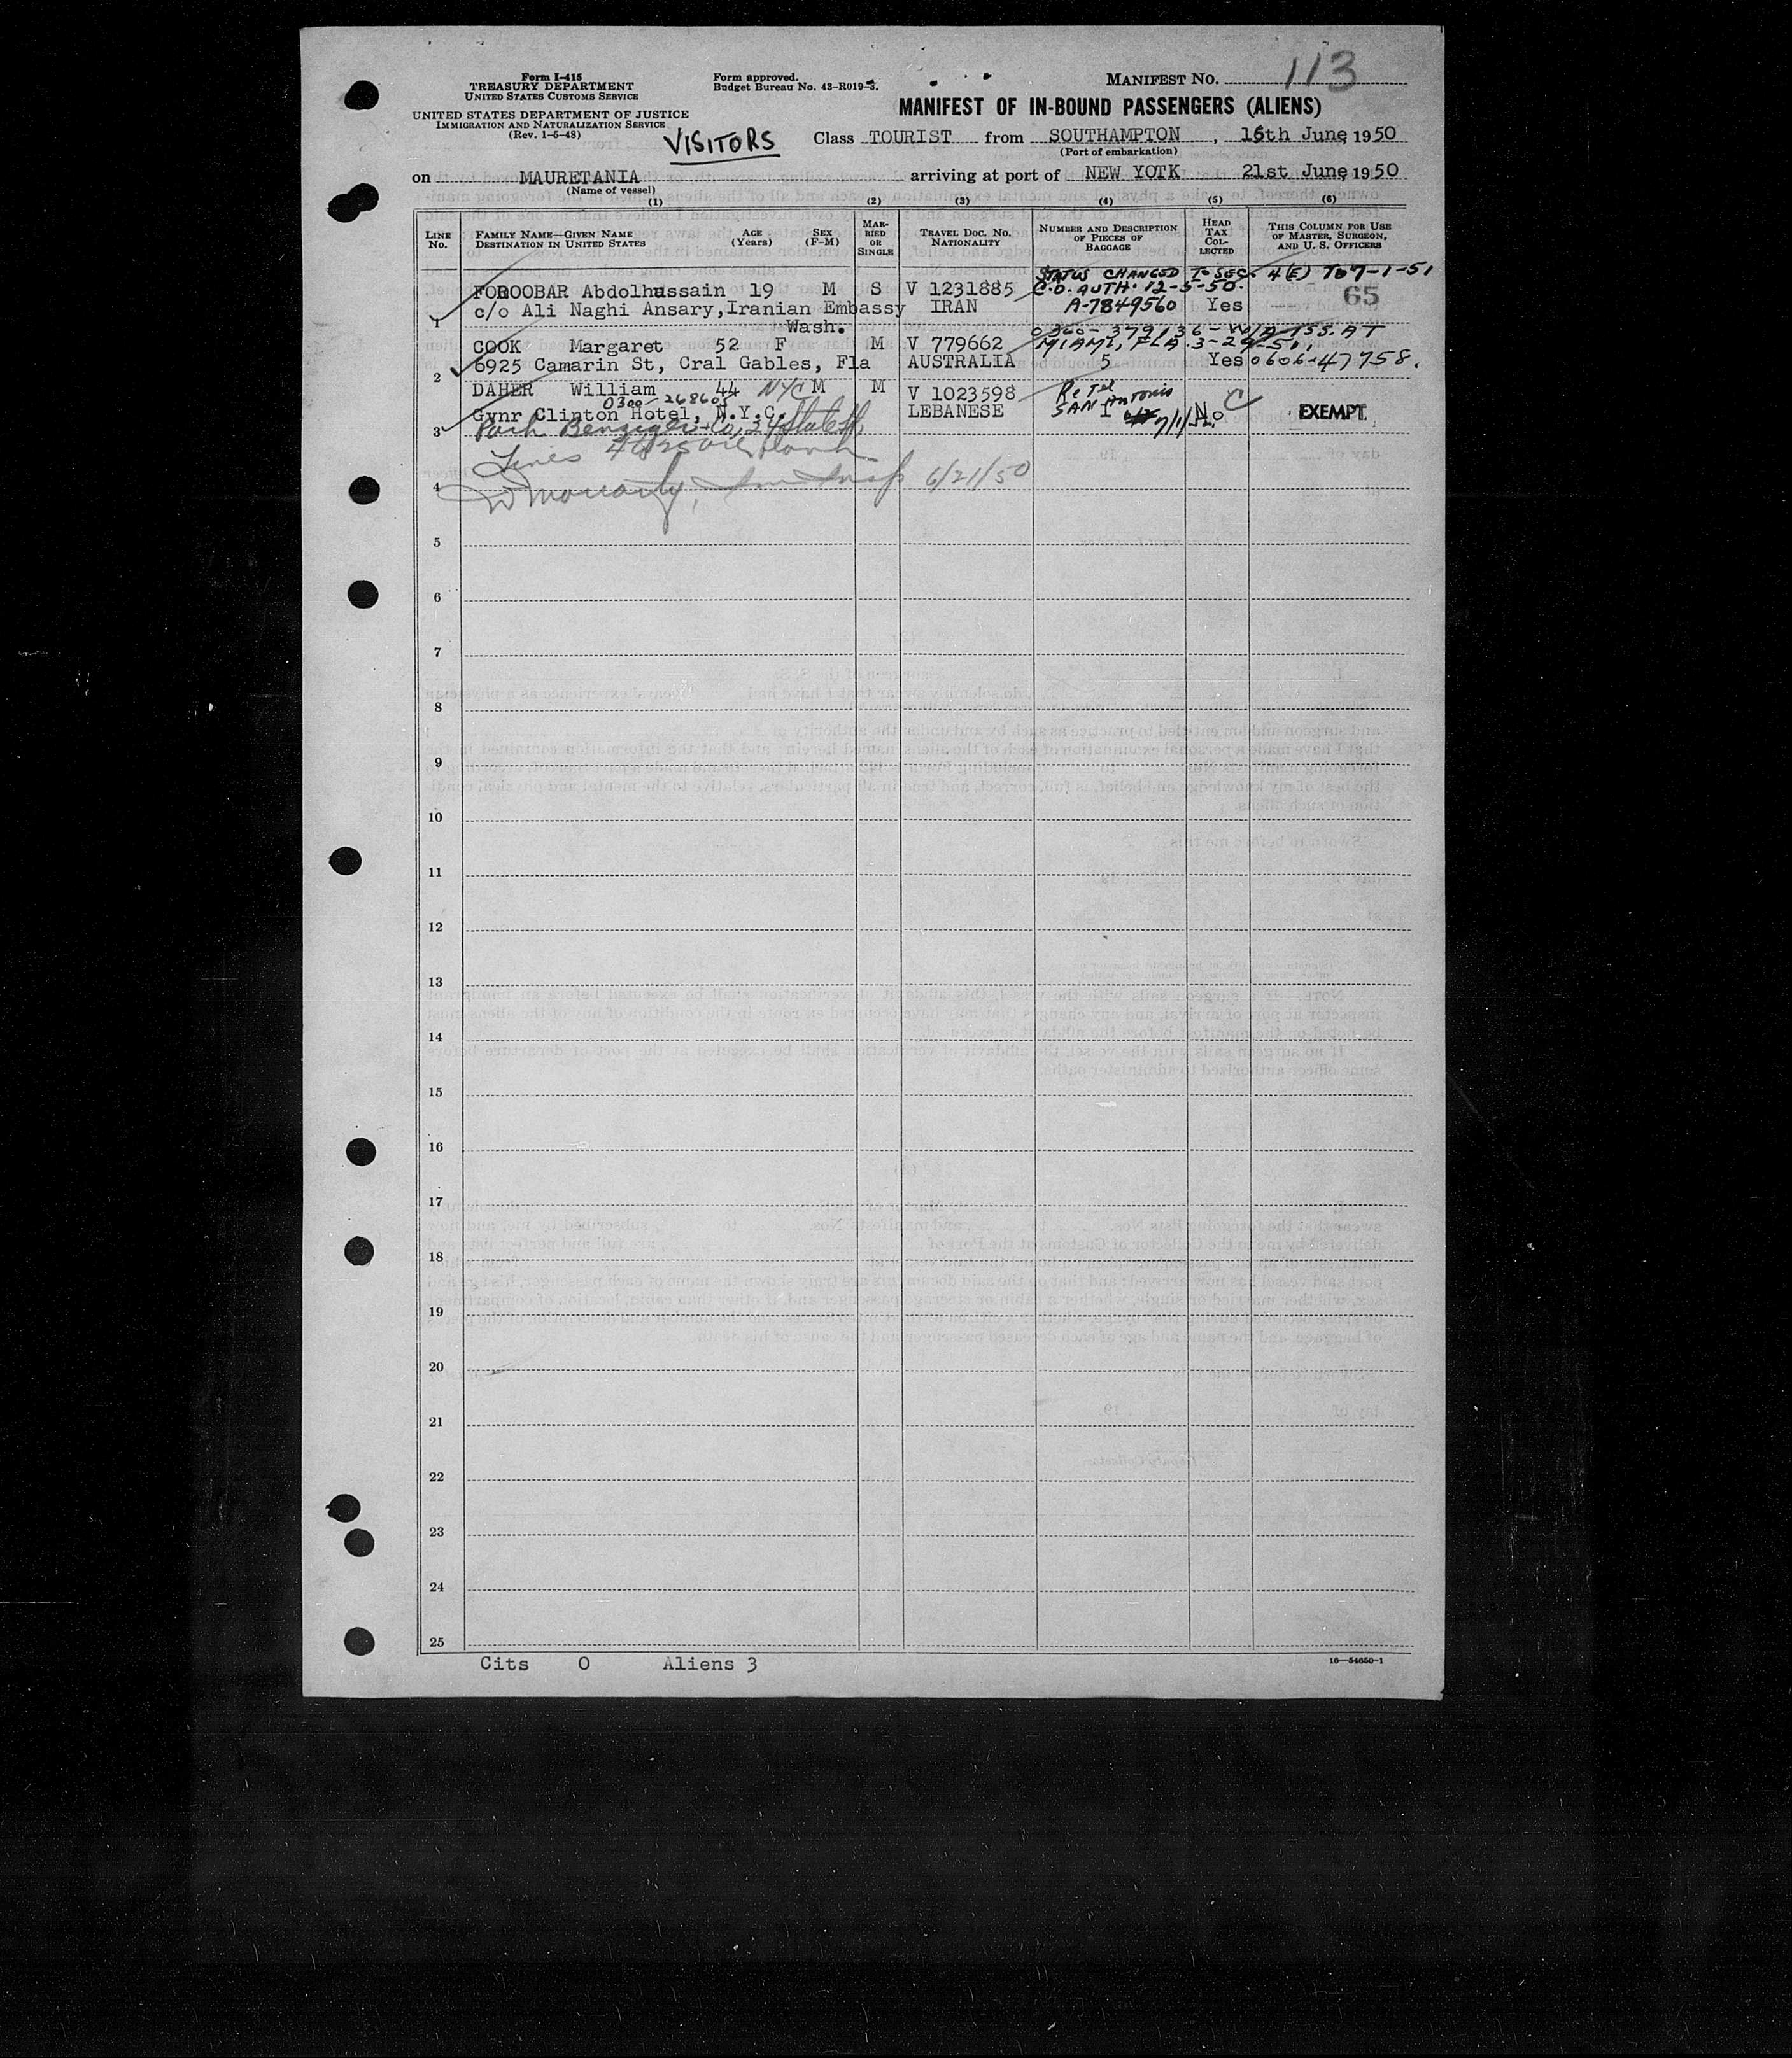 Form I-415
TREASURY DEPARTMENT
UNITED STATES CUSTOMS SERVICE
UNITED STATES DEPARTMENT OF JUSTICE
IMMIGRATION AND NATURALIZATION SERVICE
(Rev. 1-5-48)
Form approved.
Budget Bureau No. 43-R019-3.
MANIFEST NO. 113
MANIFEST OF IN-BOUND PASSENGERS (ALIENS)
VISITORS
Class TOURIST from SOUTHAMPTON, 16th June, 1950
(Port of embarkation)
on MAURETANIA arriving at port of NEW YOTK 21st June, 1950
(Name of vessel)
(1) (2) (3) (4) (5) (6)
LINE No. FAMILY NAME—GIVEN NAME DESTINATION IN UNITED STATES AGE (Years) SEX (F-M) MARRIED OR SINGLE TRAVEL DOC. NO. NATIONALITY NUMBER AND DESCRIPTION OF PIECES OF BAGGAGE HEAD TAX COLLECTED THIS COLUMN FOR USE OF MASTER, SURGEON, AND U. S. OFFICERS
STATUS CHANGED TO SEC. 4(E) TO 7-1-51
FOROOBAR Abdolhussain 19 M S V 1231885 C.O. AUTH. 12-5-50.
1 c/o Ali Naghi Ansary, Iranian Embassy IRAN A-7849560 Yes 65
Wash.
0360-379136-
COOK Margaret 52 F M V 779662 MIAMI, FLA. 3-29-51.
2 6925 Camarin St, Cral Gables, Fla AUSTRALIA 5 Yes 0606-47758.
DAHER William 44 NYC M M V 1023598 Re Tel
0300-268605 SAN Antonio
3 Gynr Clinton Hotel, N.Y.C. LEBANESE 1 No C EXEMPT.
6/21/50
4
5
6
7
8
9
10
11
12
13
14
15
16
17
18
19
20
21
22
23
24
25
Cits 0 Aliens 3
16—54650-1